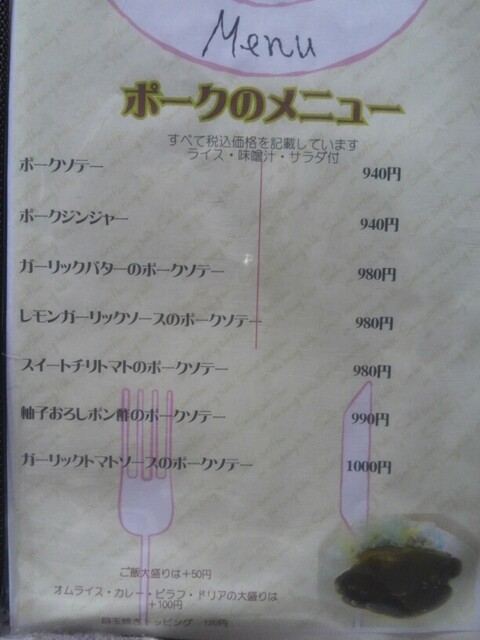 Menu
ポークのメニュー
すべて税込価格を記載しています
ライス・味噌汁・サラダ付
ポークソテー 940円
ポークジンジャー 940円
ガーリックバターのポークソテー 980円
レモンガーリックソースのポークソテー 980円
スイートチリトマトのポークソテー 980円
柚子おろしポン酢のポークソテー 990円
ガーリックトマトソースのポークソテー 1000円
ご飯大盛りは+50円
オムライス・カレー・ピラフ・ドリアの大盛りは
+100円
目玉焼きトッピング